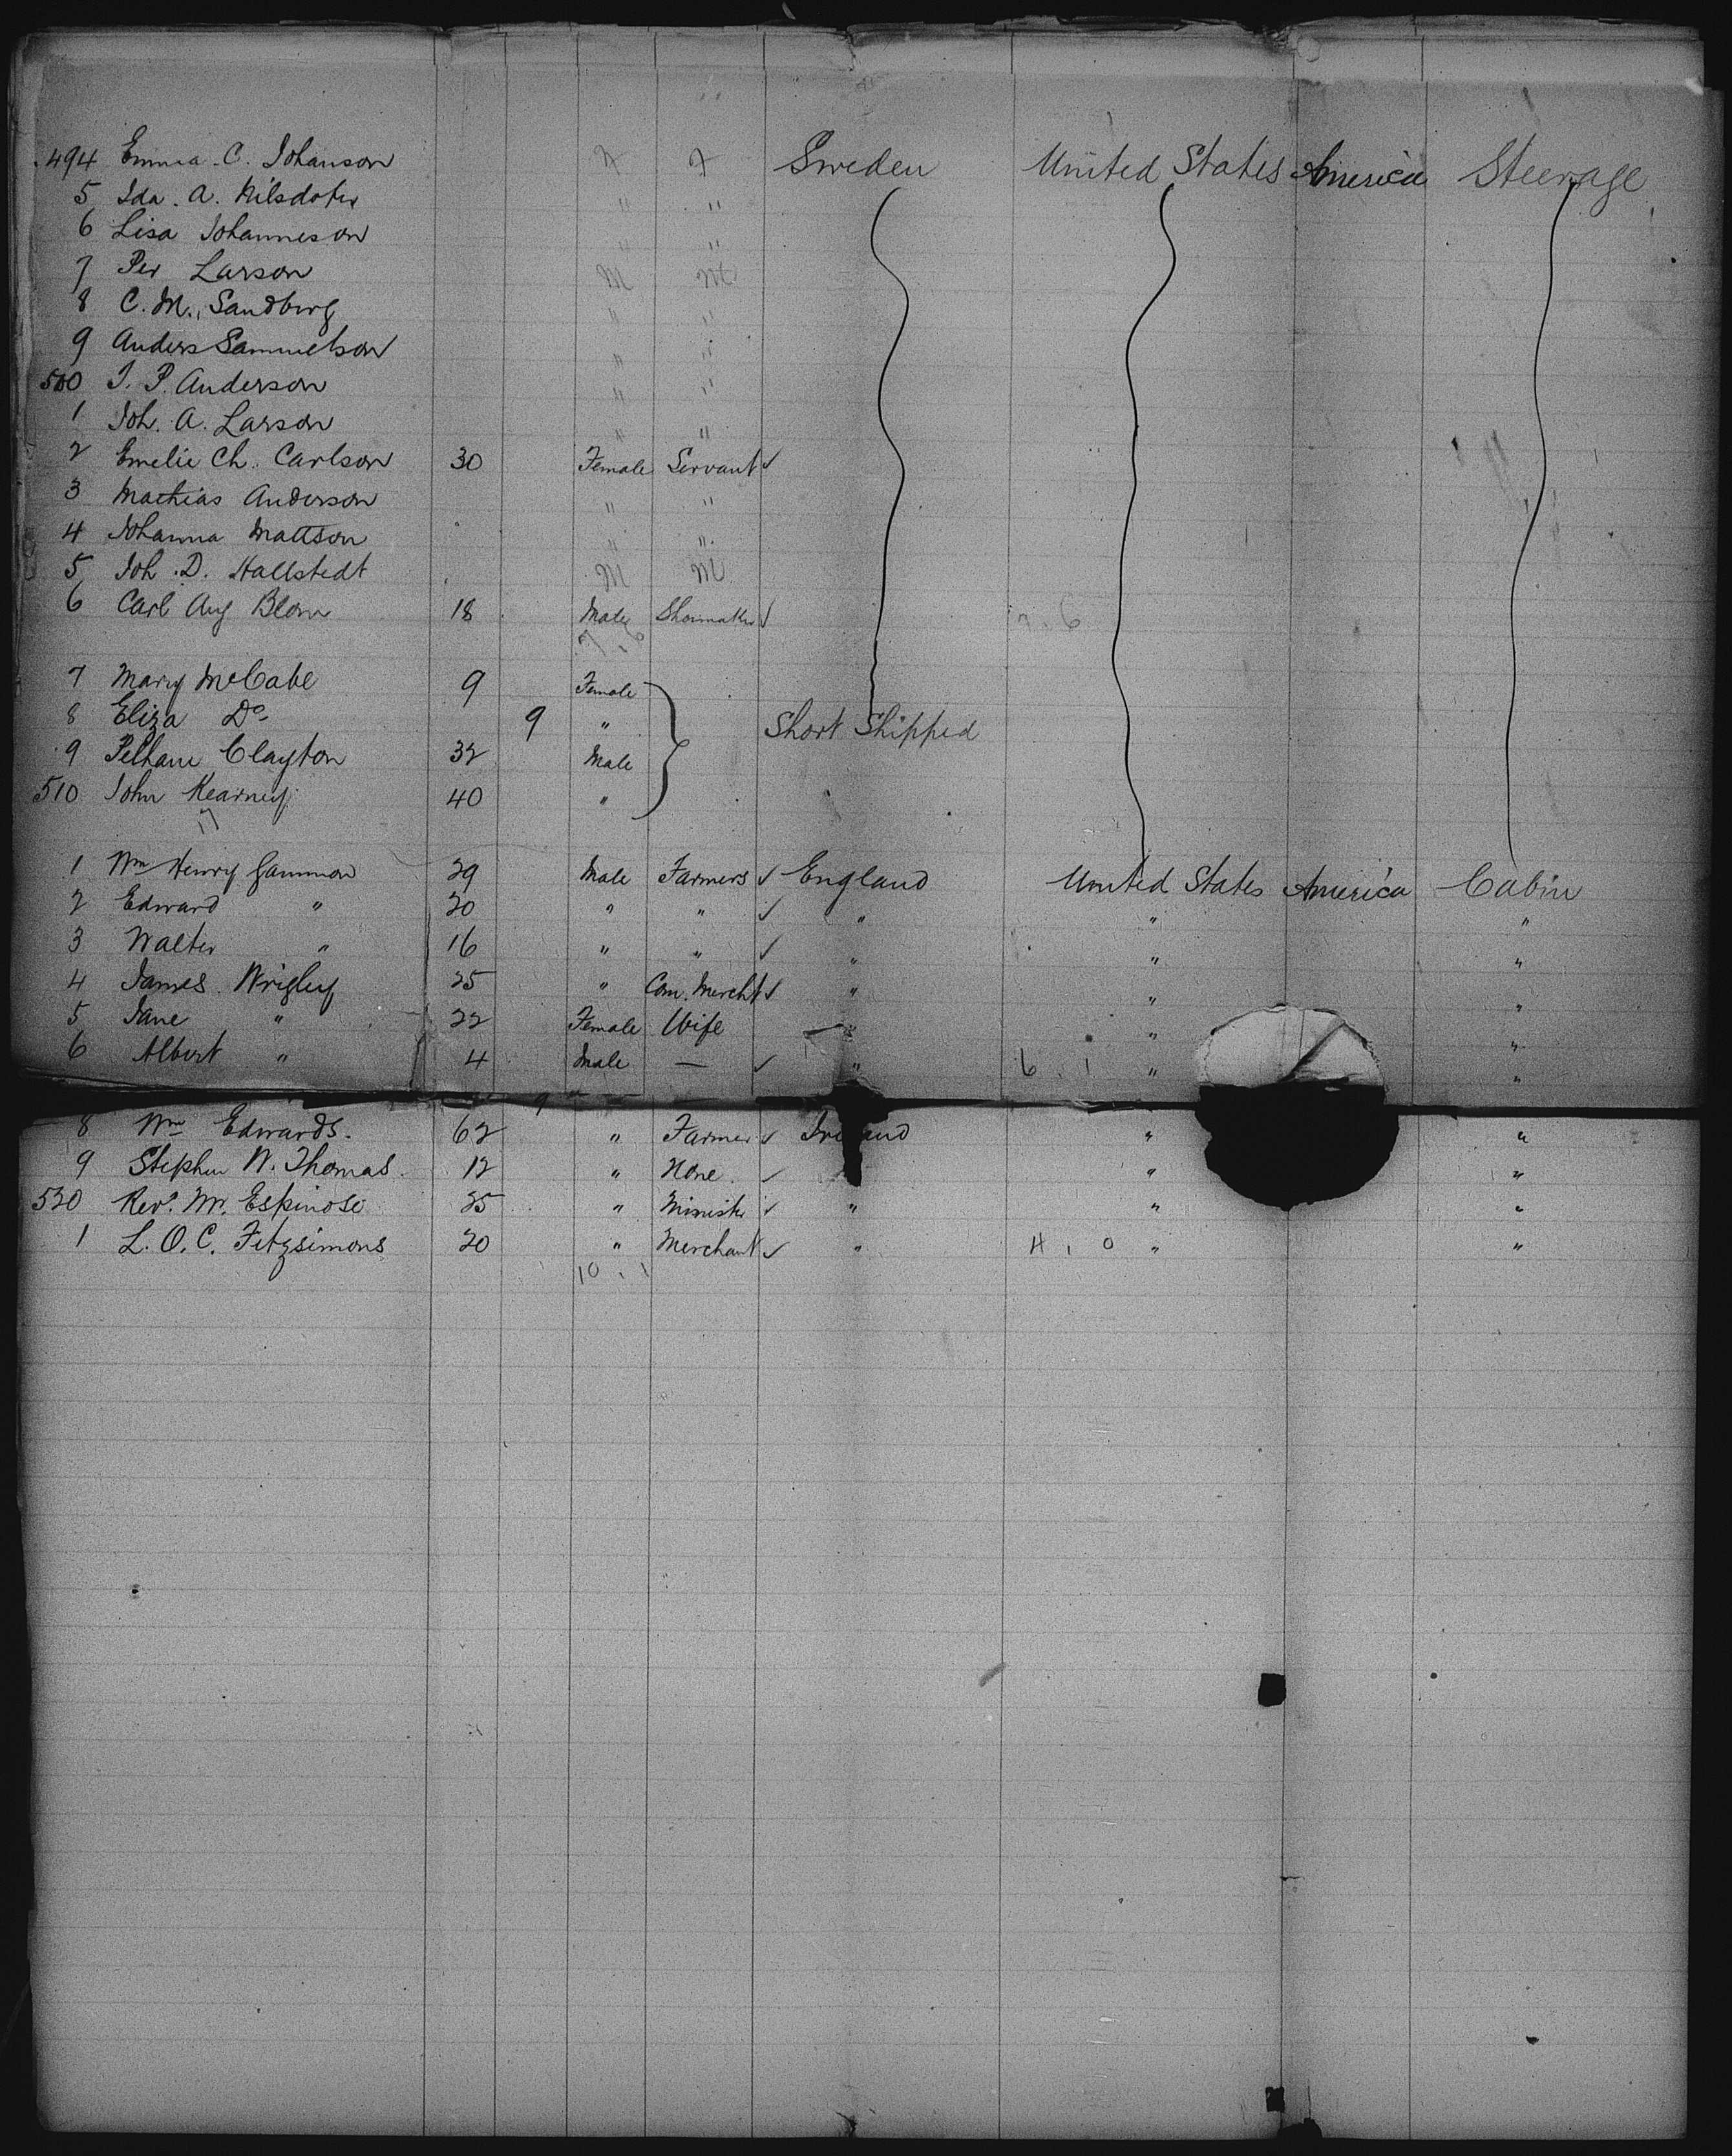 494 Emma C. Johanson F F Sweden United States America Steerage
5 Ida. A. Nilsdoter " "
6 Lisa Johanneson " "
7 Per Larson M M
8 C. M. Sandberg " "
9 Anders Samuelson " "
500 J. P. Anderson " "
1 Joh. A. Larson " "
2 Emelie Ch. Carlson 30 Female Servant ✓
3 Mathias Anderson " "
4 Johanna Mattson " "
5 Joh. D. Hallstedt M M
6 Carl Aug Blom 18 Male Shoemaker ✓ 7.6
7.6
7 Mary McCabe 9 Female
8 Eliza Do 9 " Short Shipped
9 Pelham Clayton 32 Male
510 John Kearney 40 "
1 Wm Henry Gammon 29 Male Farmers ✓ England United States America Cabin
2 Edward " 20 " " ✓ " " "
3 Walter " 16 " " ✓ " " "
4 James Wrigley 25 " Com. Mercht ✓ " " "
5 Jane " 22 Female Wife " " "
6 Albert " 4 Male — ✓ " 6.1 " "
8 Wm Edwards. 62 " Farmer ✓ Ireland " "
9 Stephen W. Thomas. 12 " None. ✓ " "
520 Revd. Mr. Espinose 25 " Minister ✓ " " "
1 L. O. C. Fitzsimons 20 " Merchant ✓ " 4.0 " "
10.1